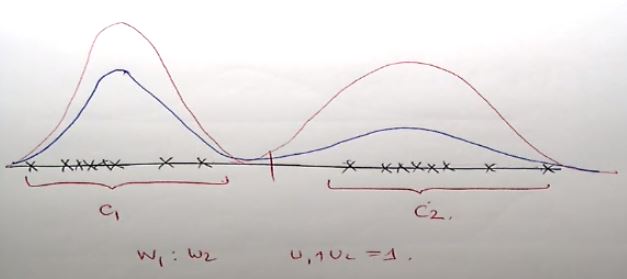 C₁
C₂.
W₁ : W₂
U₁ + U₂ = 1.